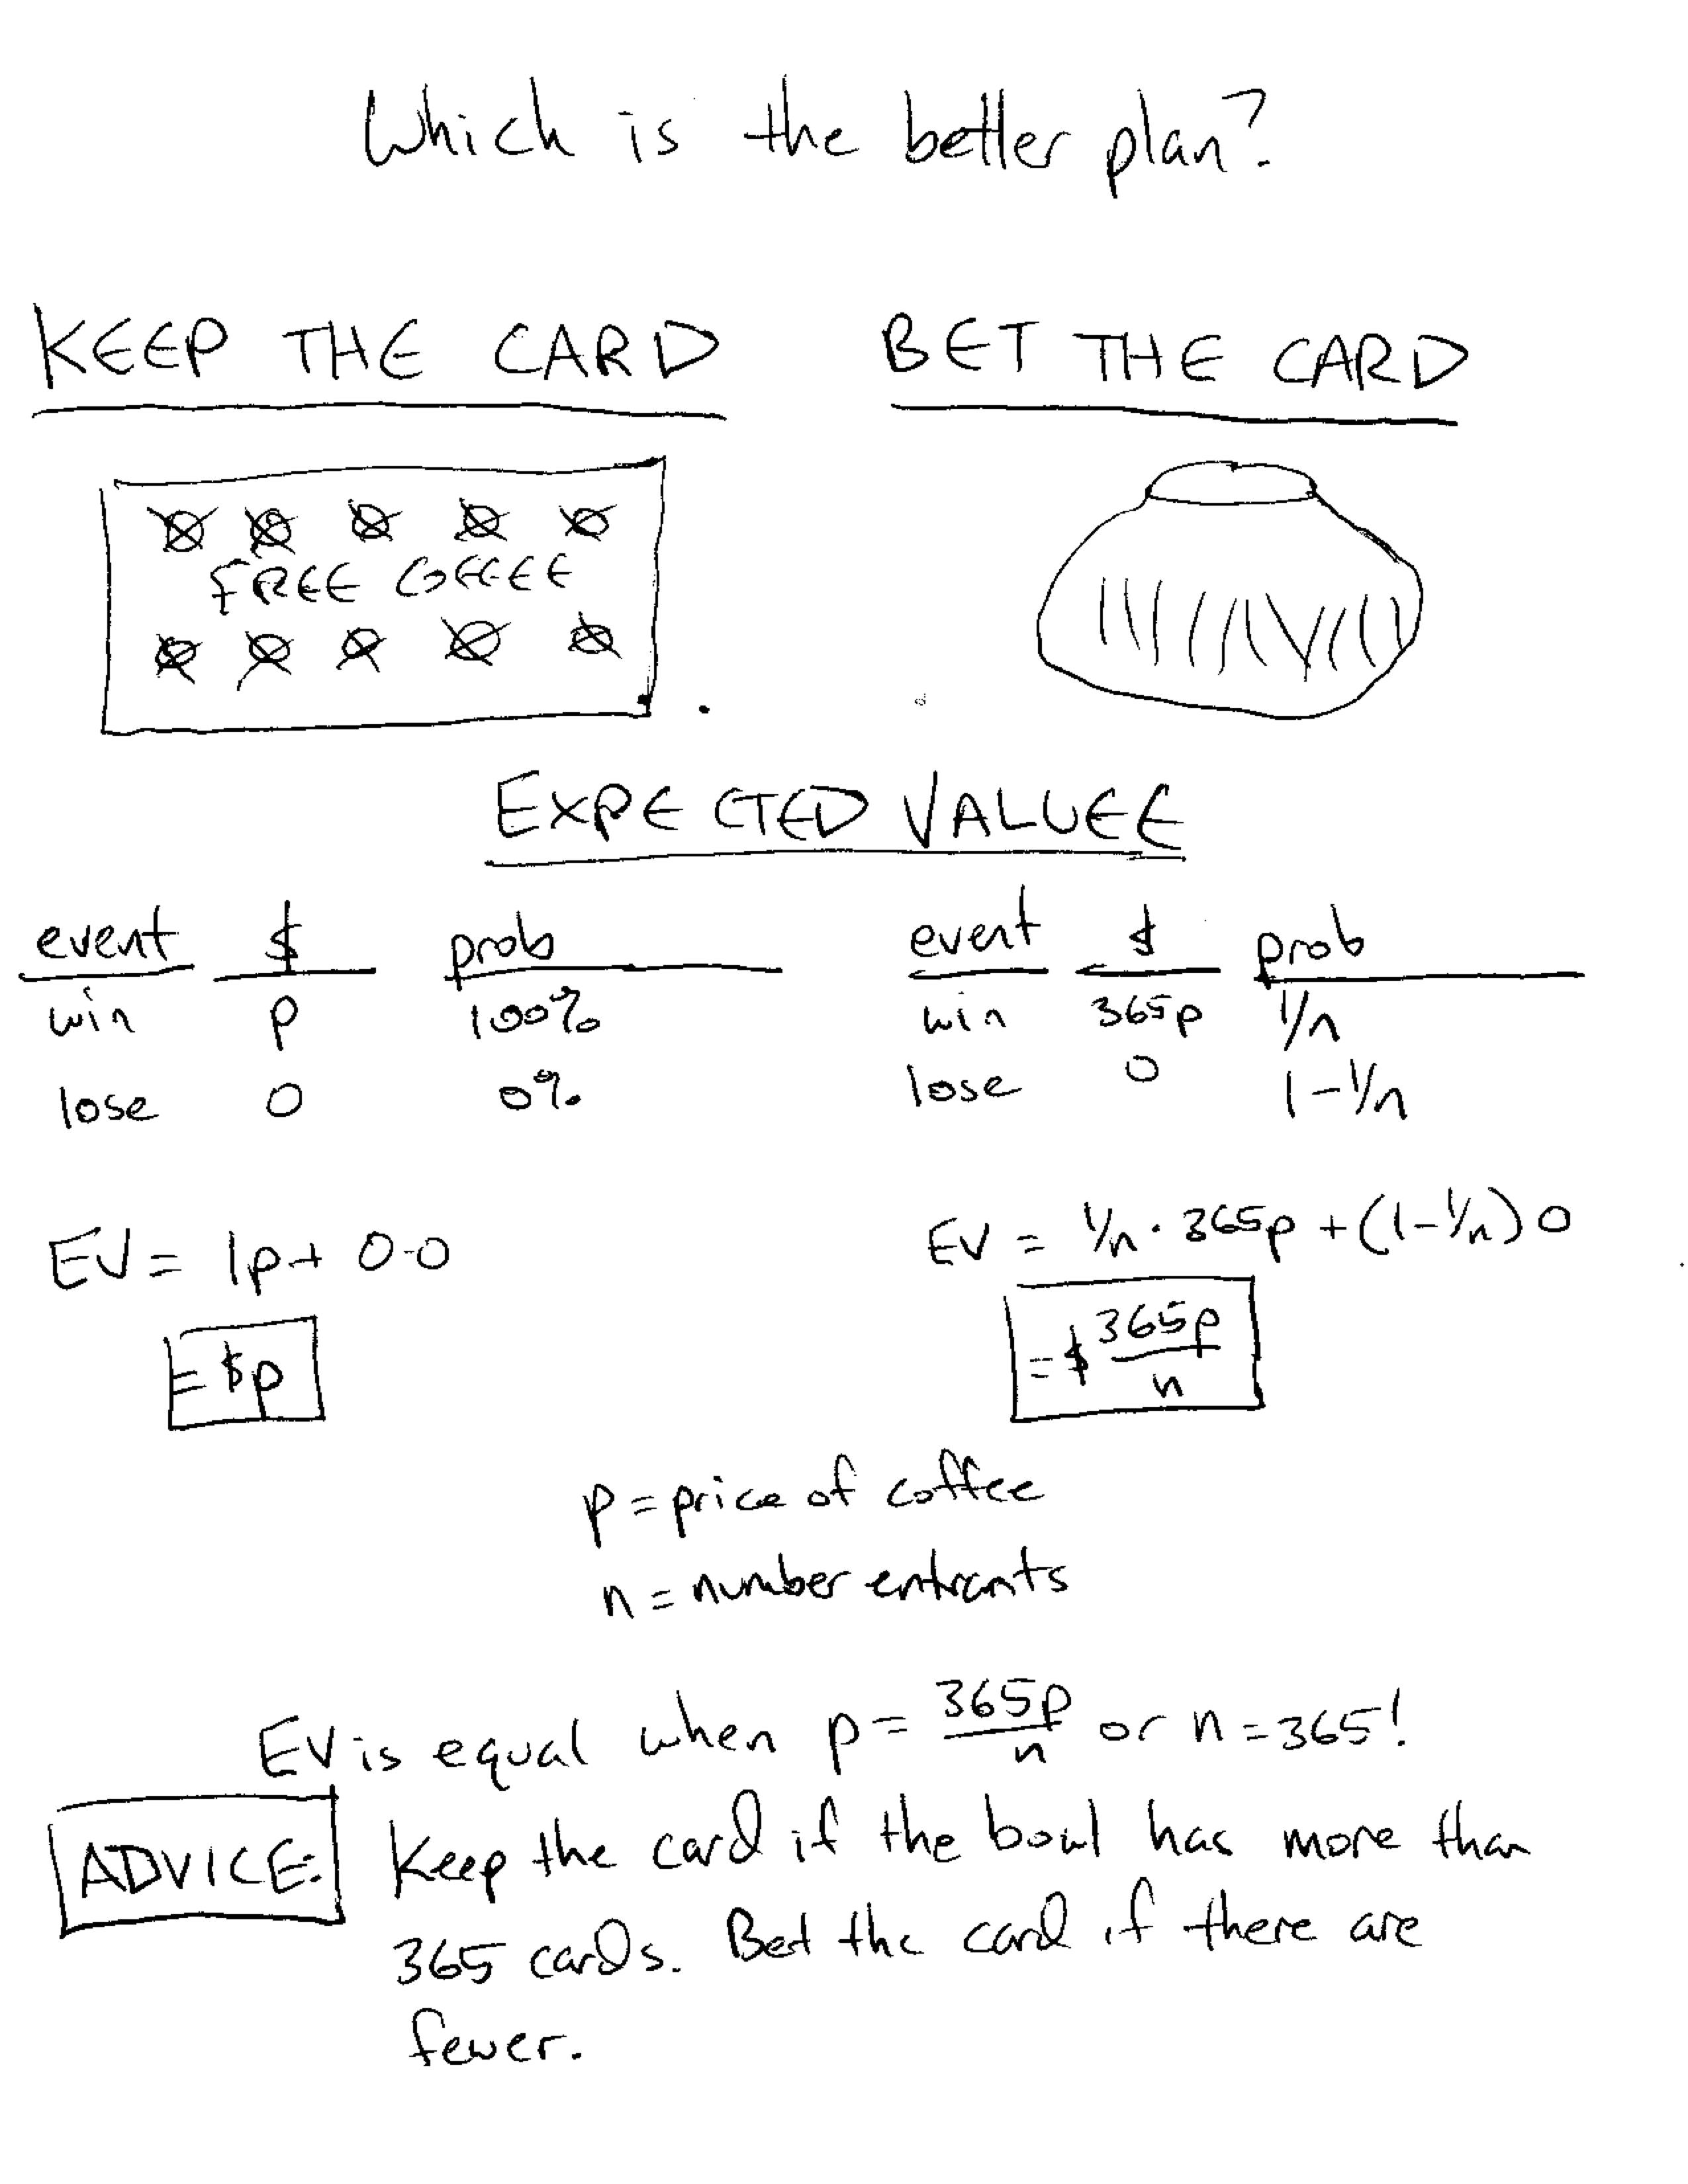 Which is the better plan?
KEEP THE CARD
BET THE CARD
FREE COFFEE
EXPECTED VALUEE
event $ prob
win p 100%
lose 0 0%
EV = 1p + 0·0
= $p
event $ prob
win 365p 1/n
lose 0 1-1/n
EV = 1/n · 365p + (1-1/n) 0
= $ 365p/n
p = price of coffee
n = number entrants
EV is equal when p = 365p/n or n = 365!
ADVICE: Keep the card if the bowl has more than
365 cards. Bet the card if there are
fewer.